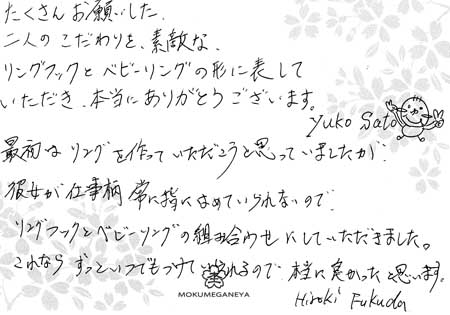 たくさんお願いした、
二人のこだわりを、素敵な、
リングフックとベビーリングの形に表して
いただき、本当にありがとうございます。
Yuko Sato
最初はリングを作っていただこうと思っていましたが、
彼女が仕事柄常に指にはめていられないので、
リングフックとベビーリングの組み合わせにしていただきました。
これならずっといつでもつけていられるので本当に良かったと思います。
MOKUMEGANEYA
Hiroki Fukuda